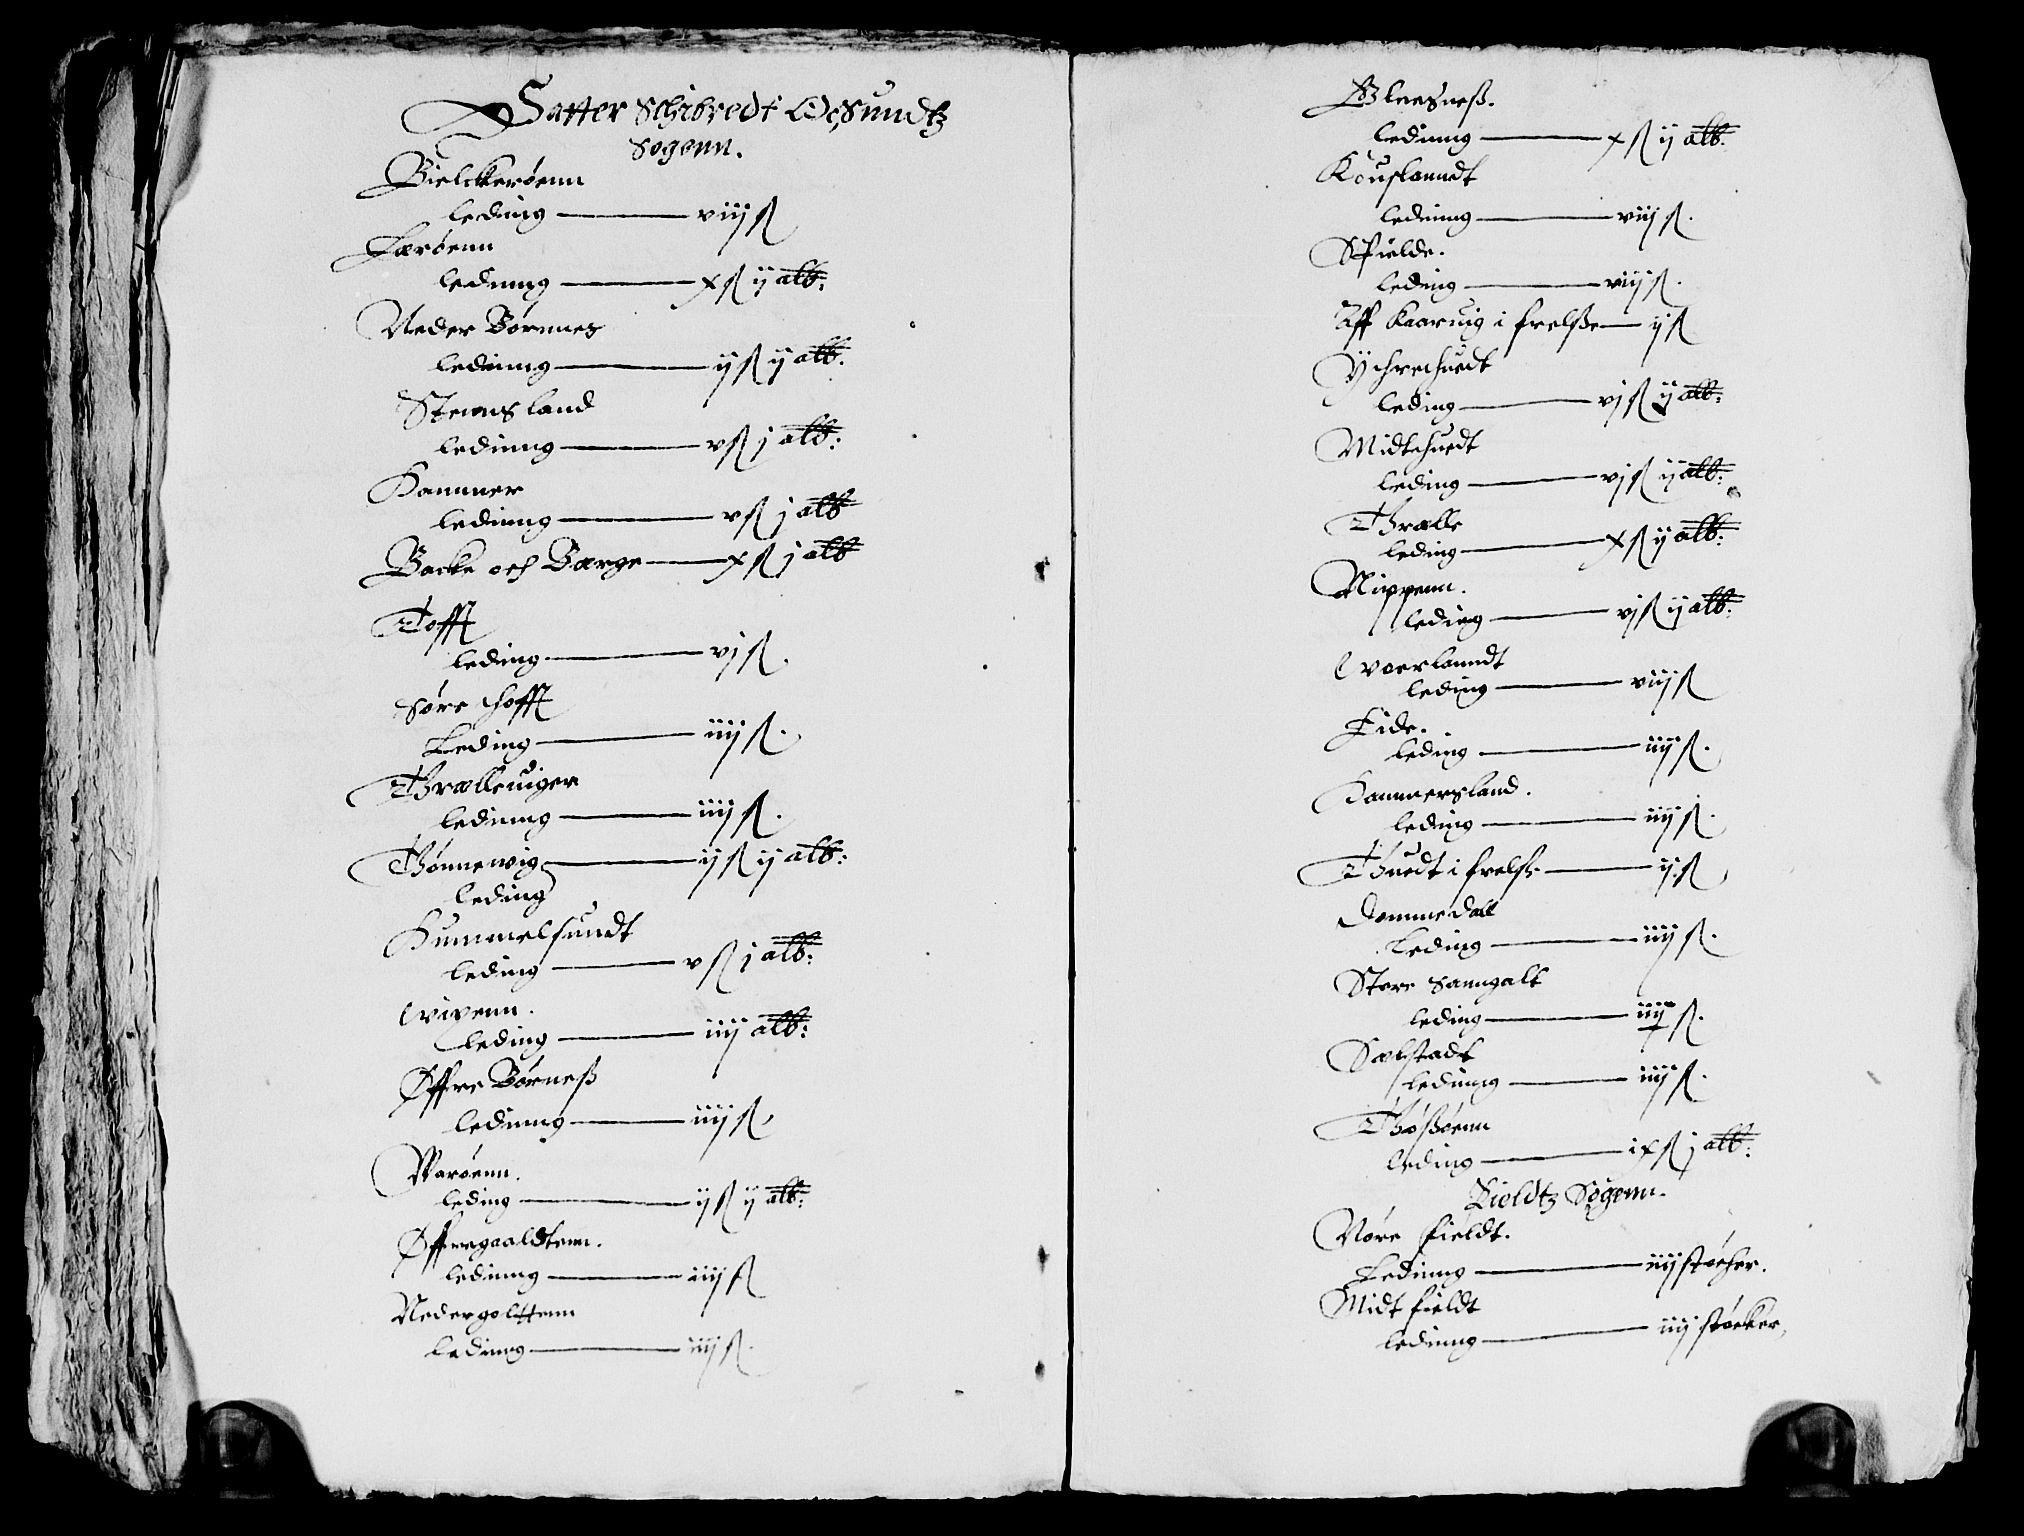 Satter Schibredt Ocsundtz
Sogenn.
Bielckerøenn
leding — viij ß
Lerøenn
ledinng — x ß ij alb:
Neder Børnnes
ledinng — ij ß ij alb.
Stennsland
ledinng — v ß j alb:
Hammer
ledinng — v ß j alb
Backe och Berge — x ß j alb
Tofft
leding — vj ß.
Søre Hofft
Leding — iiij ß.
Thrælleuiger
ledinng — iiij ß.
Thønnewig — ij ß ij alb:
leding
Hummelsundt
leding — v ß j alb:
Vixenn.
leding — iiij alb:
Øffre Børneß
ledinng — iiij ß
Warøenn.
leding — ij ß ij alb:
Øffregaaldtenn.
ledinng — iiij ß
Nedergolttenn
ledinng — iiij ß.
Bleesneß.
ledinng — x ß ij alb:
Kouslanndt
ledinng — viij ß.
Spielde.
leding — viij ß.
Aff Kaaruig i frelße — ij ß
Ychrehuedt
leding — vj ß ij alb:
Midtehuedt
leding — vj ß ij alb:
Thrælle
leding — x ß ij alb:
Nippenn.
leding — vj ß ij alb:
Voerlanndt
leding — viij ß
Eide.
leding — iiij ß.
Hammersland.
leding — iiij ß.
Thuedt i frelße — ij ß
Dommedall
Leding — iiij ß.
Store Sanngalt
leding — iiij ß.
Selstadt
ledinng — iiij ß.
Thøßøenn
leding — ix ß j alb:
Fieldtz Sogenn.
Nøre fieldt.
Ledinng — iiij støcher.
Midt fieldt
ledinng — iiij støcker,